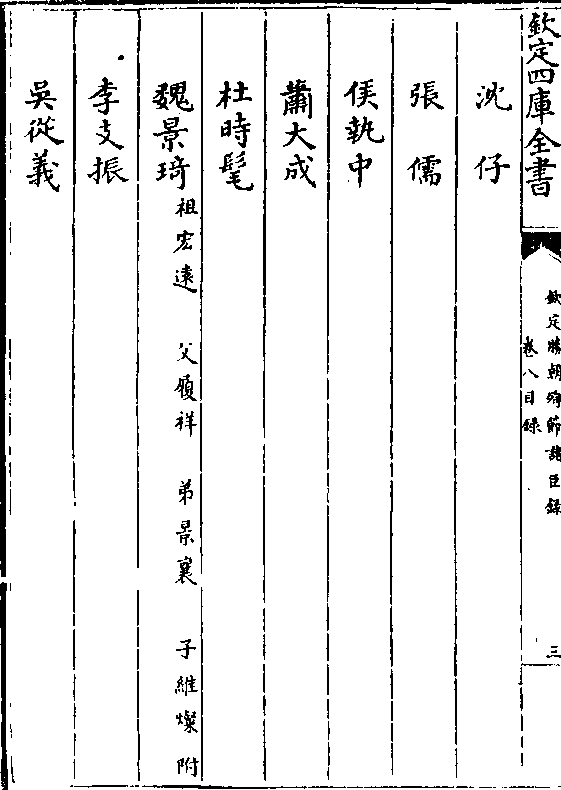 欽定四庫全書
欽定勝朝殉節諸臣錄
卷八目錄
三
沈仔
張儒
侯執中
蕭大成
杜時髦
魏景琦祖宏遠 父頤祥 弟景襄 子維燦附
李支振
吳從義